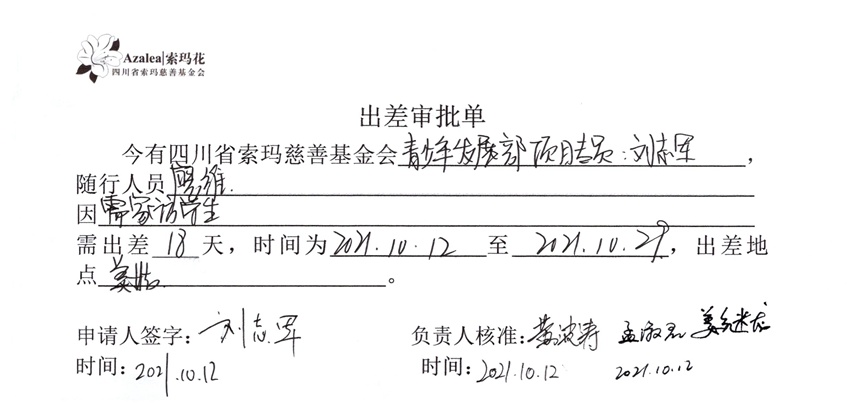 Azalea|索玛花
四川省索玛慈善基金会
出差审批单
今有四川省索玛慈善基金会青少年发展部项目专员:刘志军,
随行人员 维.
因需家访学生
需出差18天,时间为2021.10.12至2021.10.29,出差地
点美姑。
申请人签字:刘志军 负责人核准:黄波涛 孟淑君 姜继龙
时间:2021.10.12 时间:2021.10.12 2021.10.12